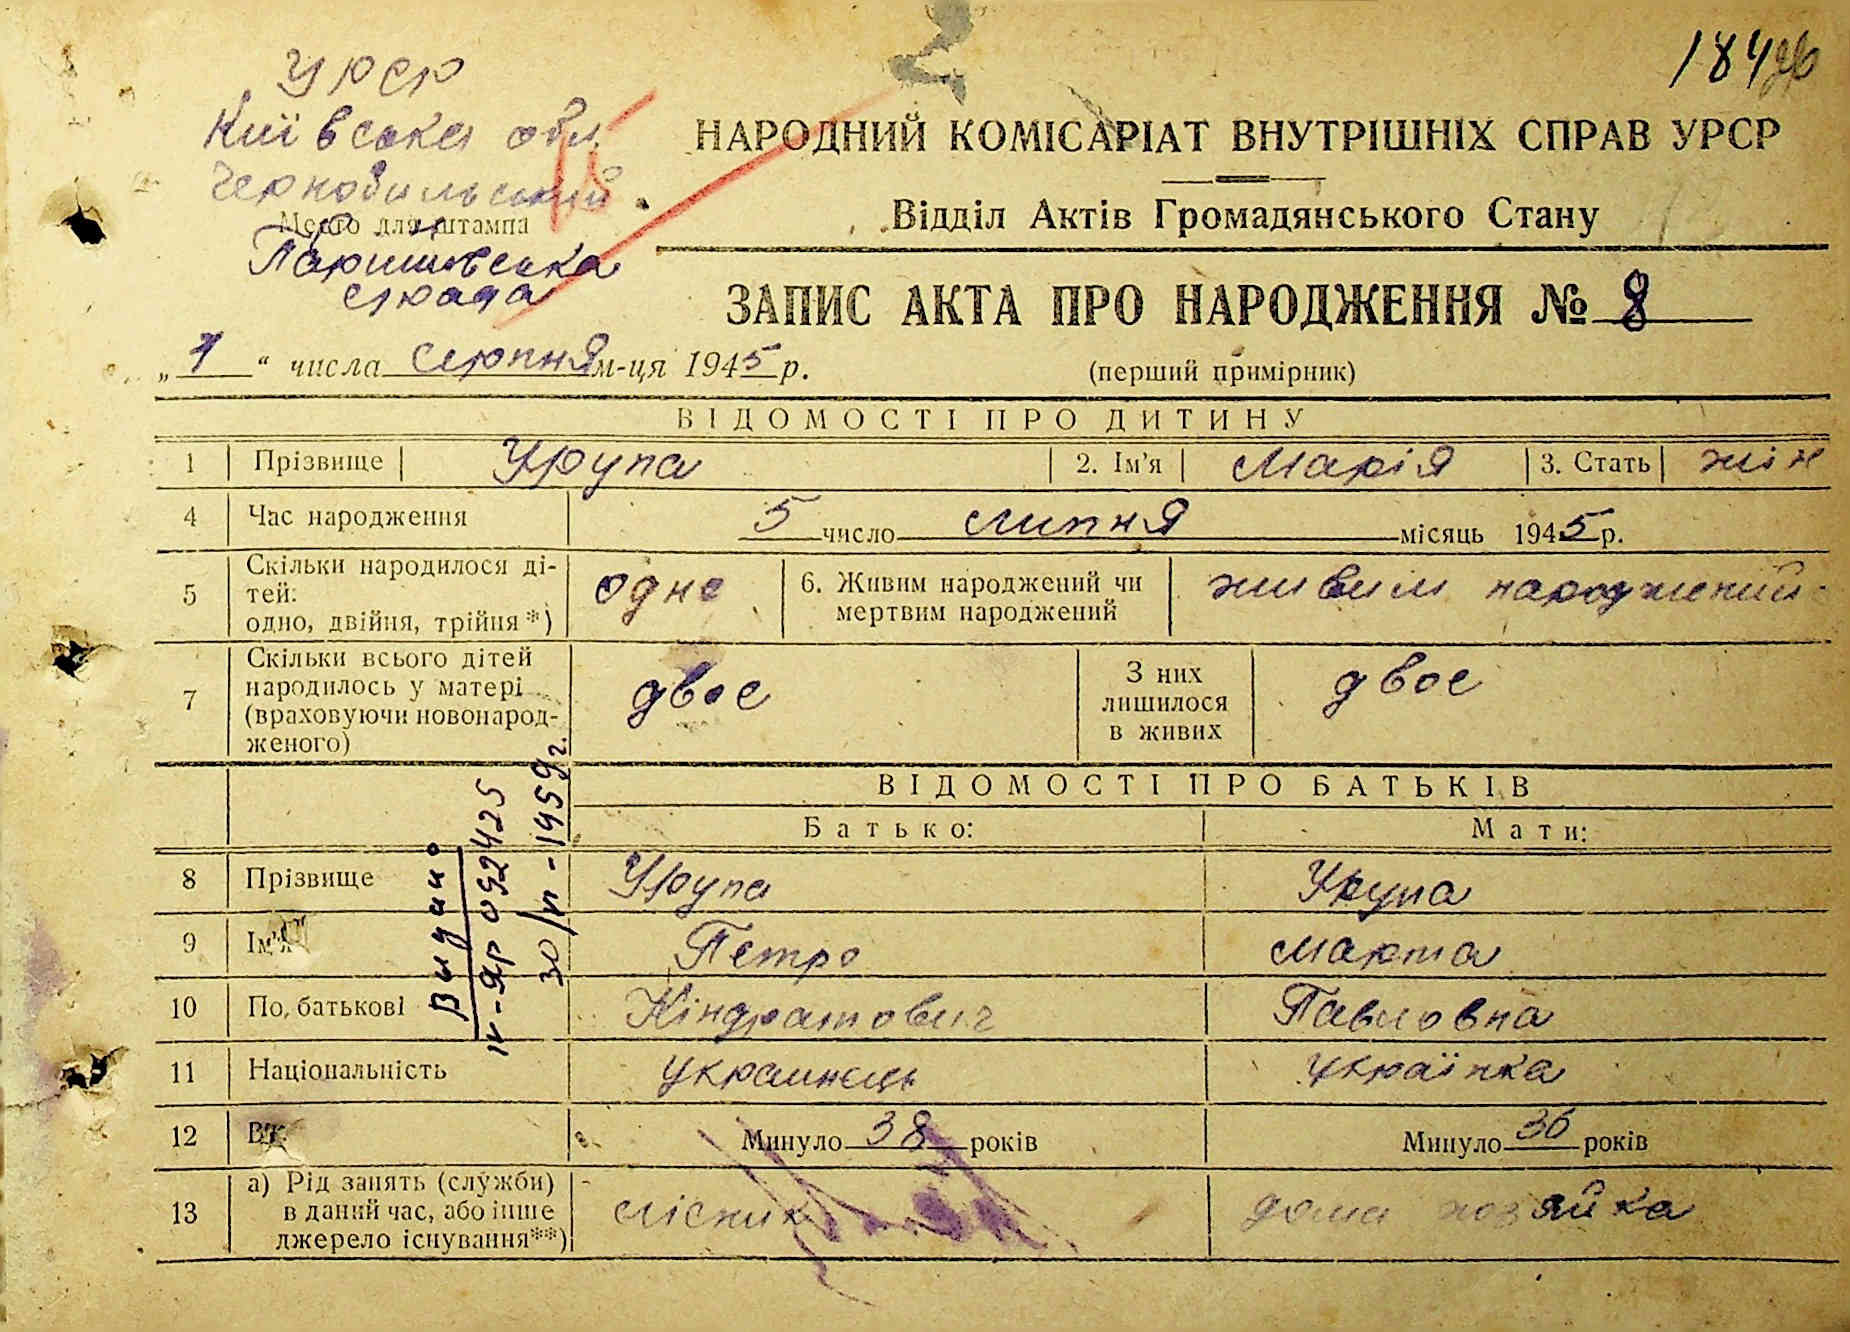 184
УРСР
Київська обл.
Чернобильський
Место для штампа
Паришівська
с/рада
НАРОДНИЙ КОМІСАРІАТ ВНУТРІШНІХ СПРАВ УРСР
Відділ Актів Громадянського Стану
ЗАПИС АКТА ПРО НАРОДЖЕННЯ № 8
„ 7 “ числа серпня м-ця 1945 р.
(перший примірник)
ВІДОМОСТІ ПРО ДИТИНУ
1 Прізвище Урупа 2. Ім'я Марія 3. Стать жін
4 Час народження 5 число липня місяць 1945 р.
5 Скільки народилося ді-
тей:
одно, двійня, трійня*)
одне
6. Живим народжений чи
мертвим народжений
живим народжений
7 Скільки всього дітей
народилось у матері
(враховуючи новонарод-
женого)
двоє
З них
лишилося
в живих
двоє
ВІДОМОСТІ ПРО БАТЬКІВ
Батько: Мати:
8 Прізвище Урупа Урупа
9 Ім'я Петро Марта
10 По батькові Кіндратович Павловна
11 Національність украинець українка
12 Вік Минуло 38 років Минуло 36 років
13 а) Рід занять (служби)
в даний час, або інше
джерело існування**)
лісник дома хозяйка
Видано
II-ЯР 092425
30/п-1959г.